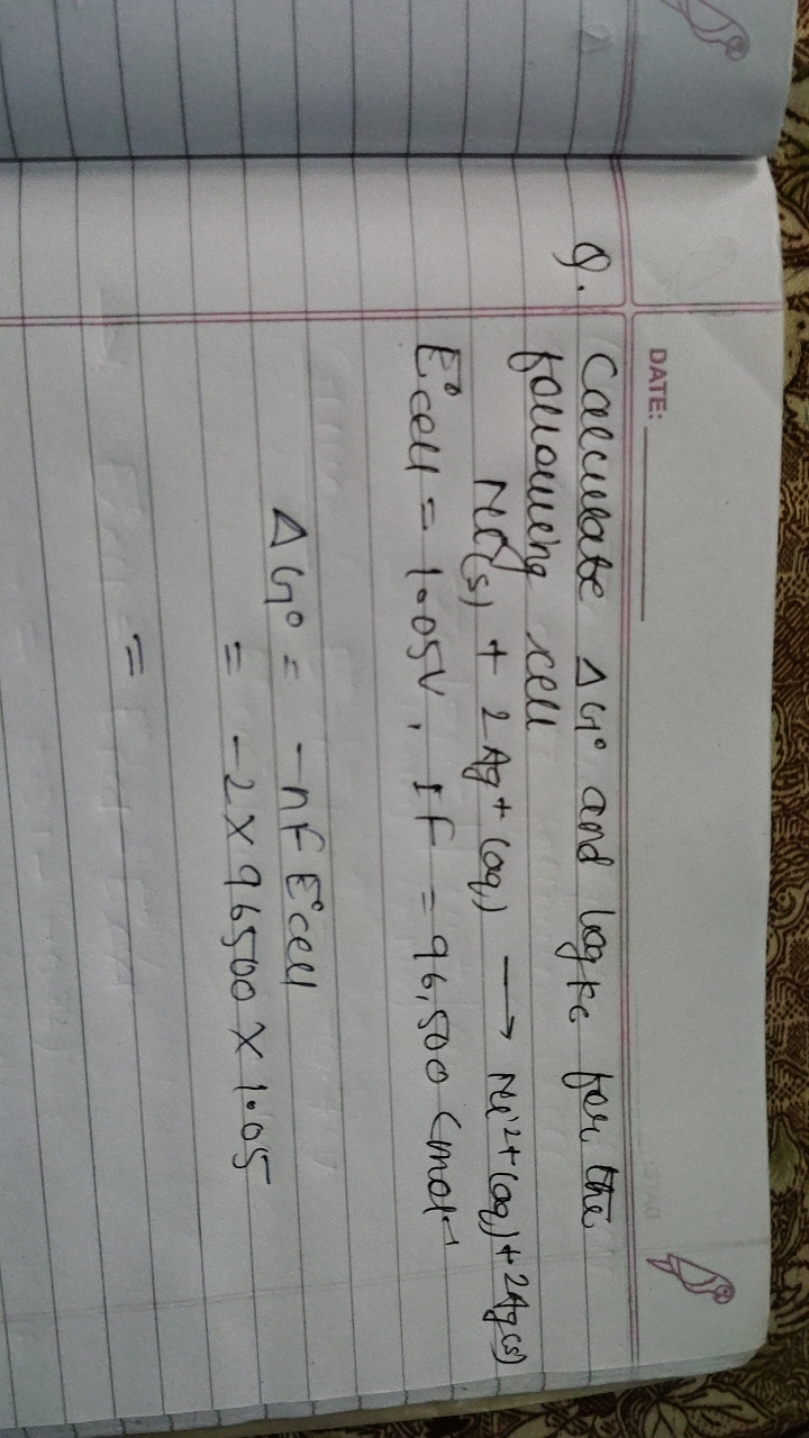 DATE:
Q. Calculate ΔG° and log Kc for the
following cell
Ni(s) + 2Ag+ (aq) → Ni2+ (aq) + 2Ag(s)
E°cell = 1.05V, 1F = 96,500 Cmol-1
ΔG° = -nFE°cell
= -2 × 96500 × 1.05
=